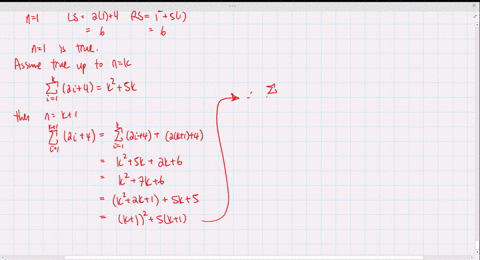 n=1 LS = 2(1)+4 RS = 1²+5(1)
= 6 = 6
n=1 is true.
Assume true up to n=k
k
∑ (2i+4) = k²+5k
i=1
then n=k+1
k+1 k
∑ (2i+4) = ∑ (2i+4) + (2(k+1)+4)
i=1 i=1
= k²+5k+2k+6
= k²+7k+6
= (k²+2k+1) + 5k+5
= (k+1)² + 5(k+1)
∴ ∑